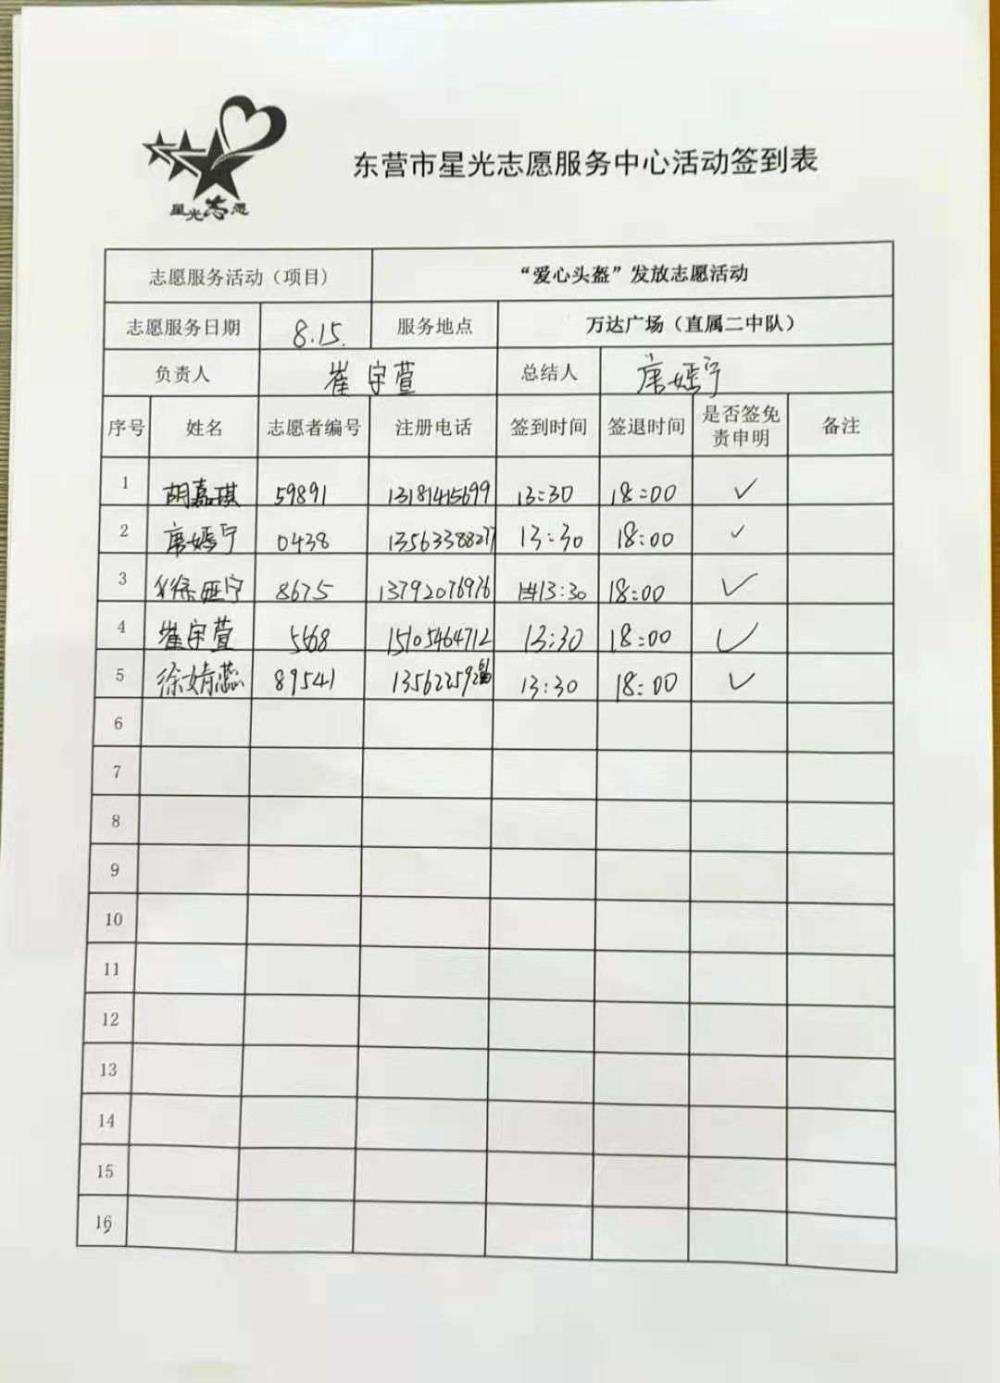 星光志愿
东营市星光志愿服务中心活动签到表
志愿服务活动（项目） “爱心头盔”发放志愿活动
志愿服务日期 8.15. 服务地点 万达广场（直属二中队）
负责人 崔宇萱 总结人 唐嫣宁
序号 姓名 志愿者编号 注册电话 签到时间 签退时间 是否签免责申明 备注
1 胡嘉琪 59891 13181415699 13:30 18:00 ✓
2 唐嫣宁 0438 13563388277 13:30 18:00 ✓
3 徐 宁 8675 13792076976 13:30 18:00 ✓
4 崔宇萱 5668 15105464712 13:30 18:00 ✓
5 徐婧蕊 89541 13:30 18:00 ✓
6
7
8
9
10
11
12
13
14
15
16